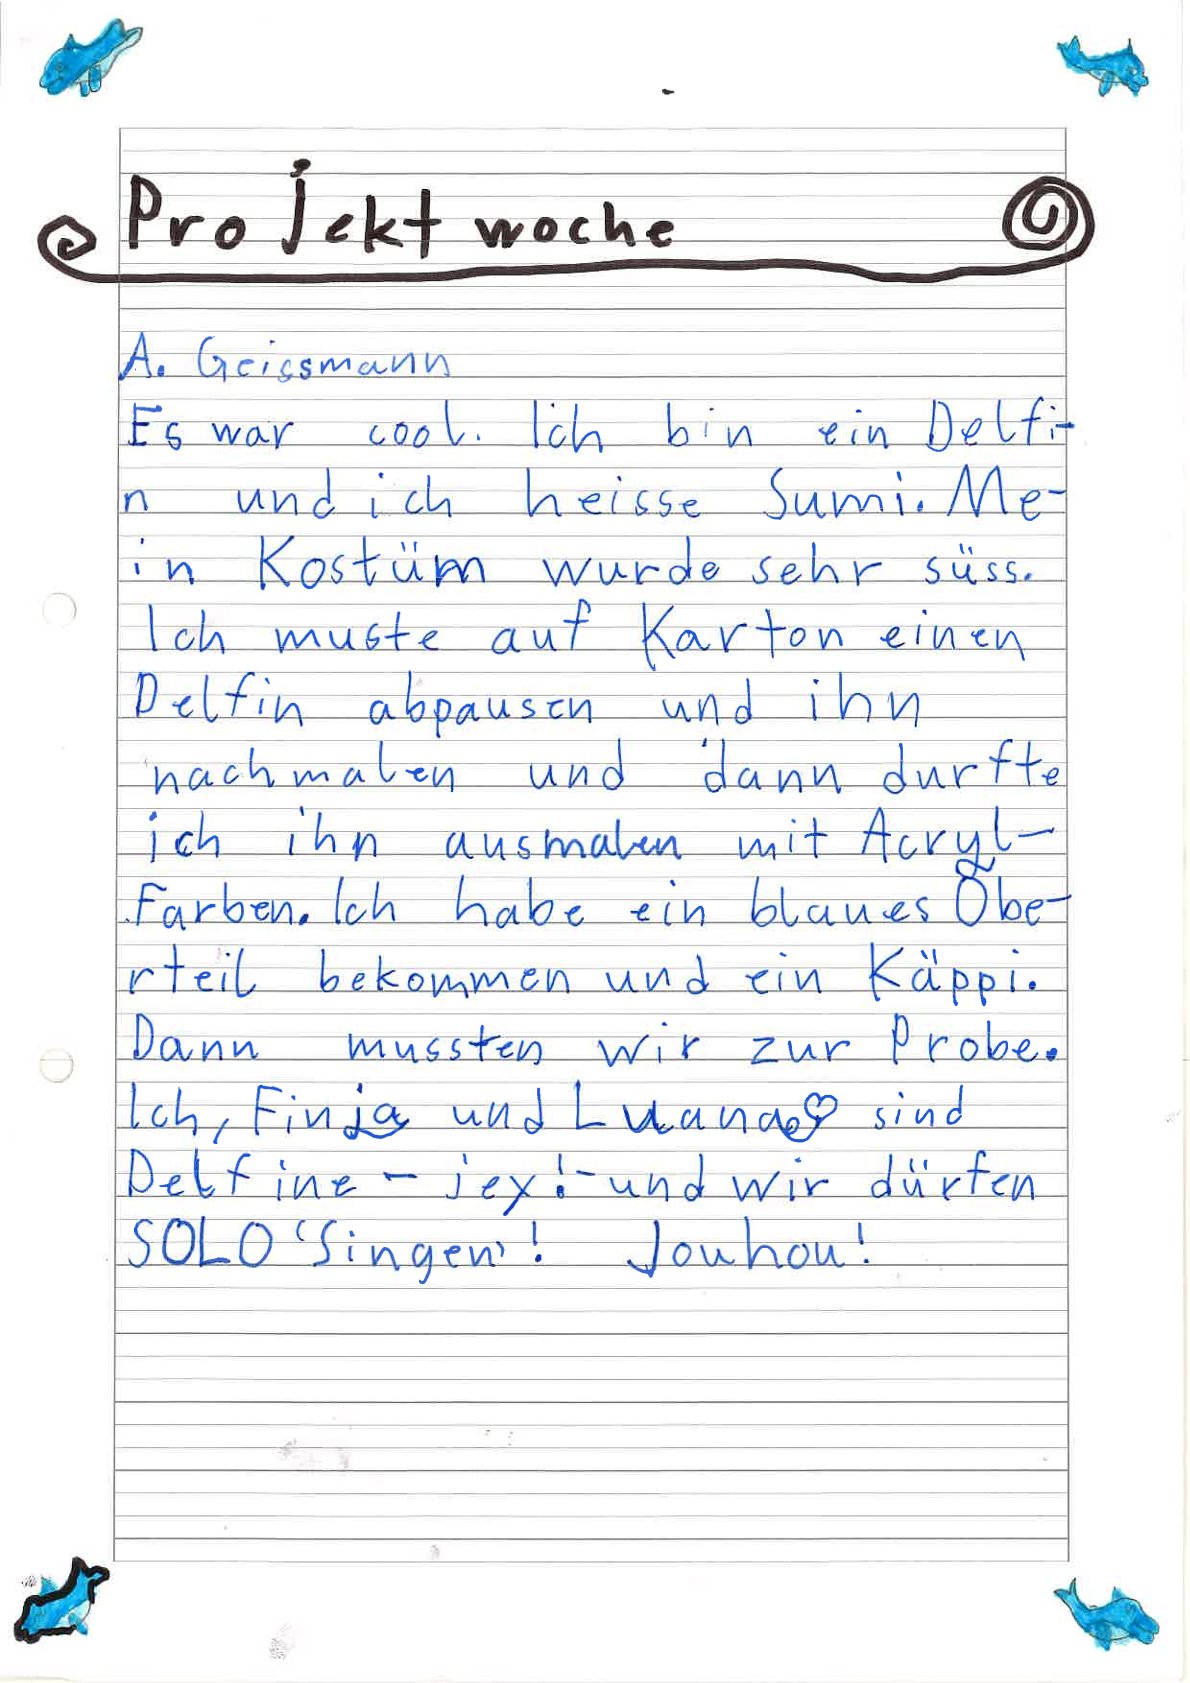 Projektwoche
A. Geissmann
Es war cool. Ich bin ein Delfi-
n und ich heisse Sumi. Me-
in Kostüm wurde sehr süss.
Ich muste auf Karton einen
Delfin abpausen und ihn
nachmalen und dann durfte
ich ihn ausmalen mit Acryl-
Farben. Ich habe ein blaues Obe-
rteil bekommen und ein Käppi.
Dann mussten wir zur Probe.
Ich, Finja und Luana♡ sind
Delfine - jey! - und wir dürfen
SOLO 'Singen'! Jouhou!